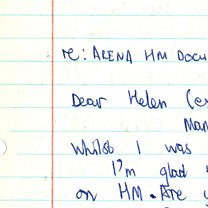 re: ARENA HM DOCU
Dear Helen (e
Man
Whilst I was
I'm glad
on HM. Are